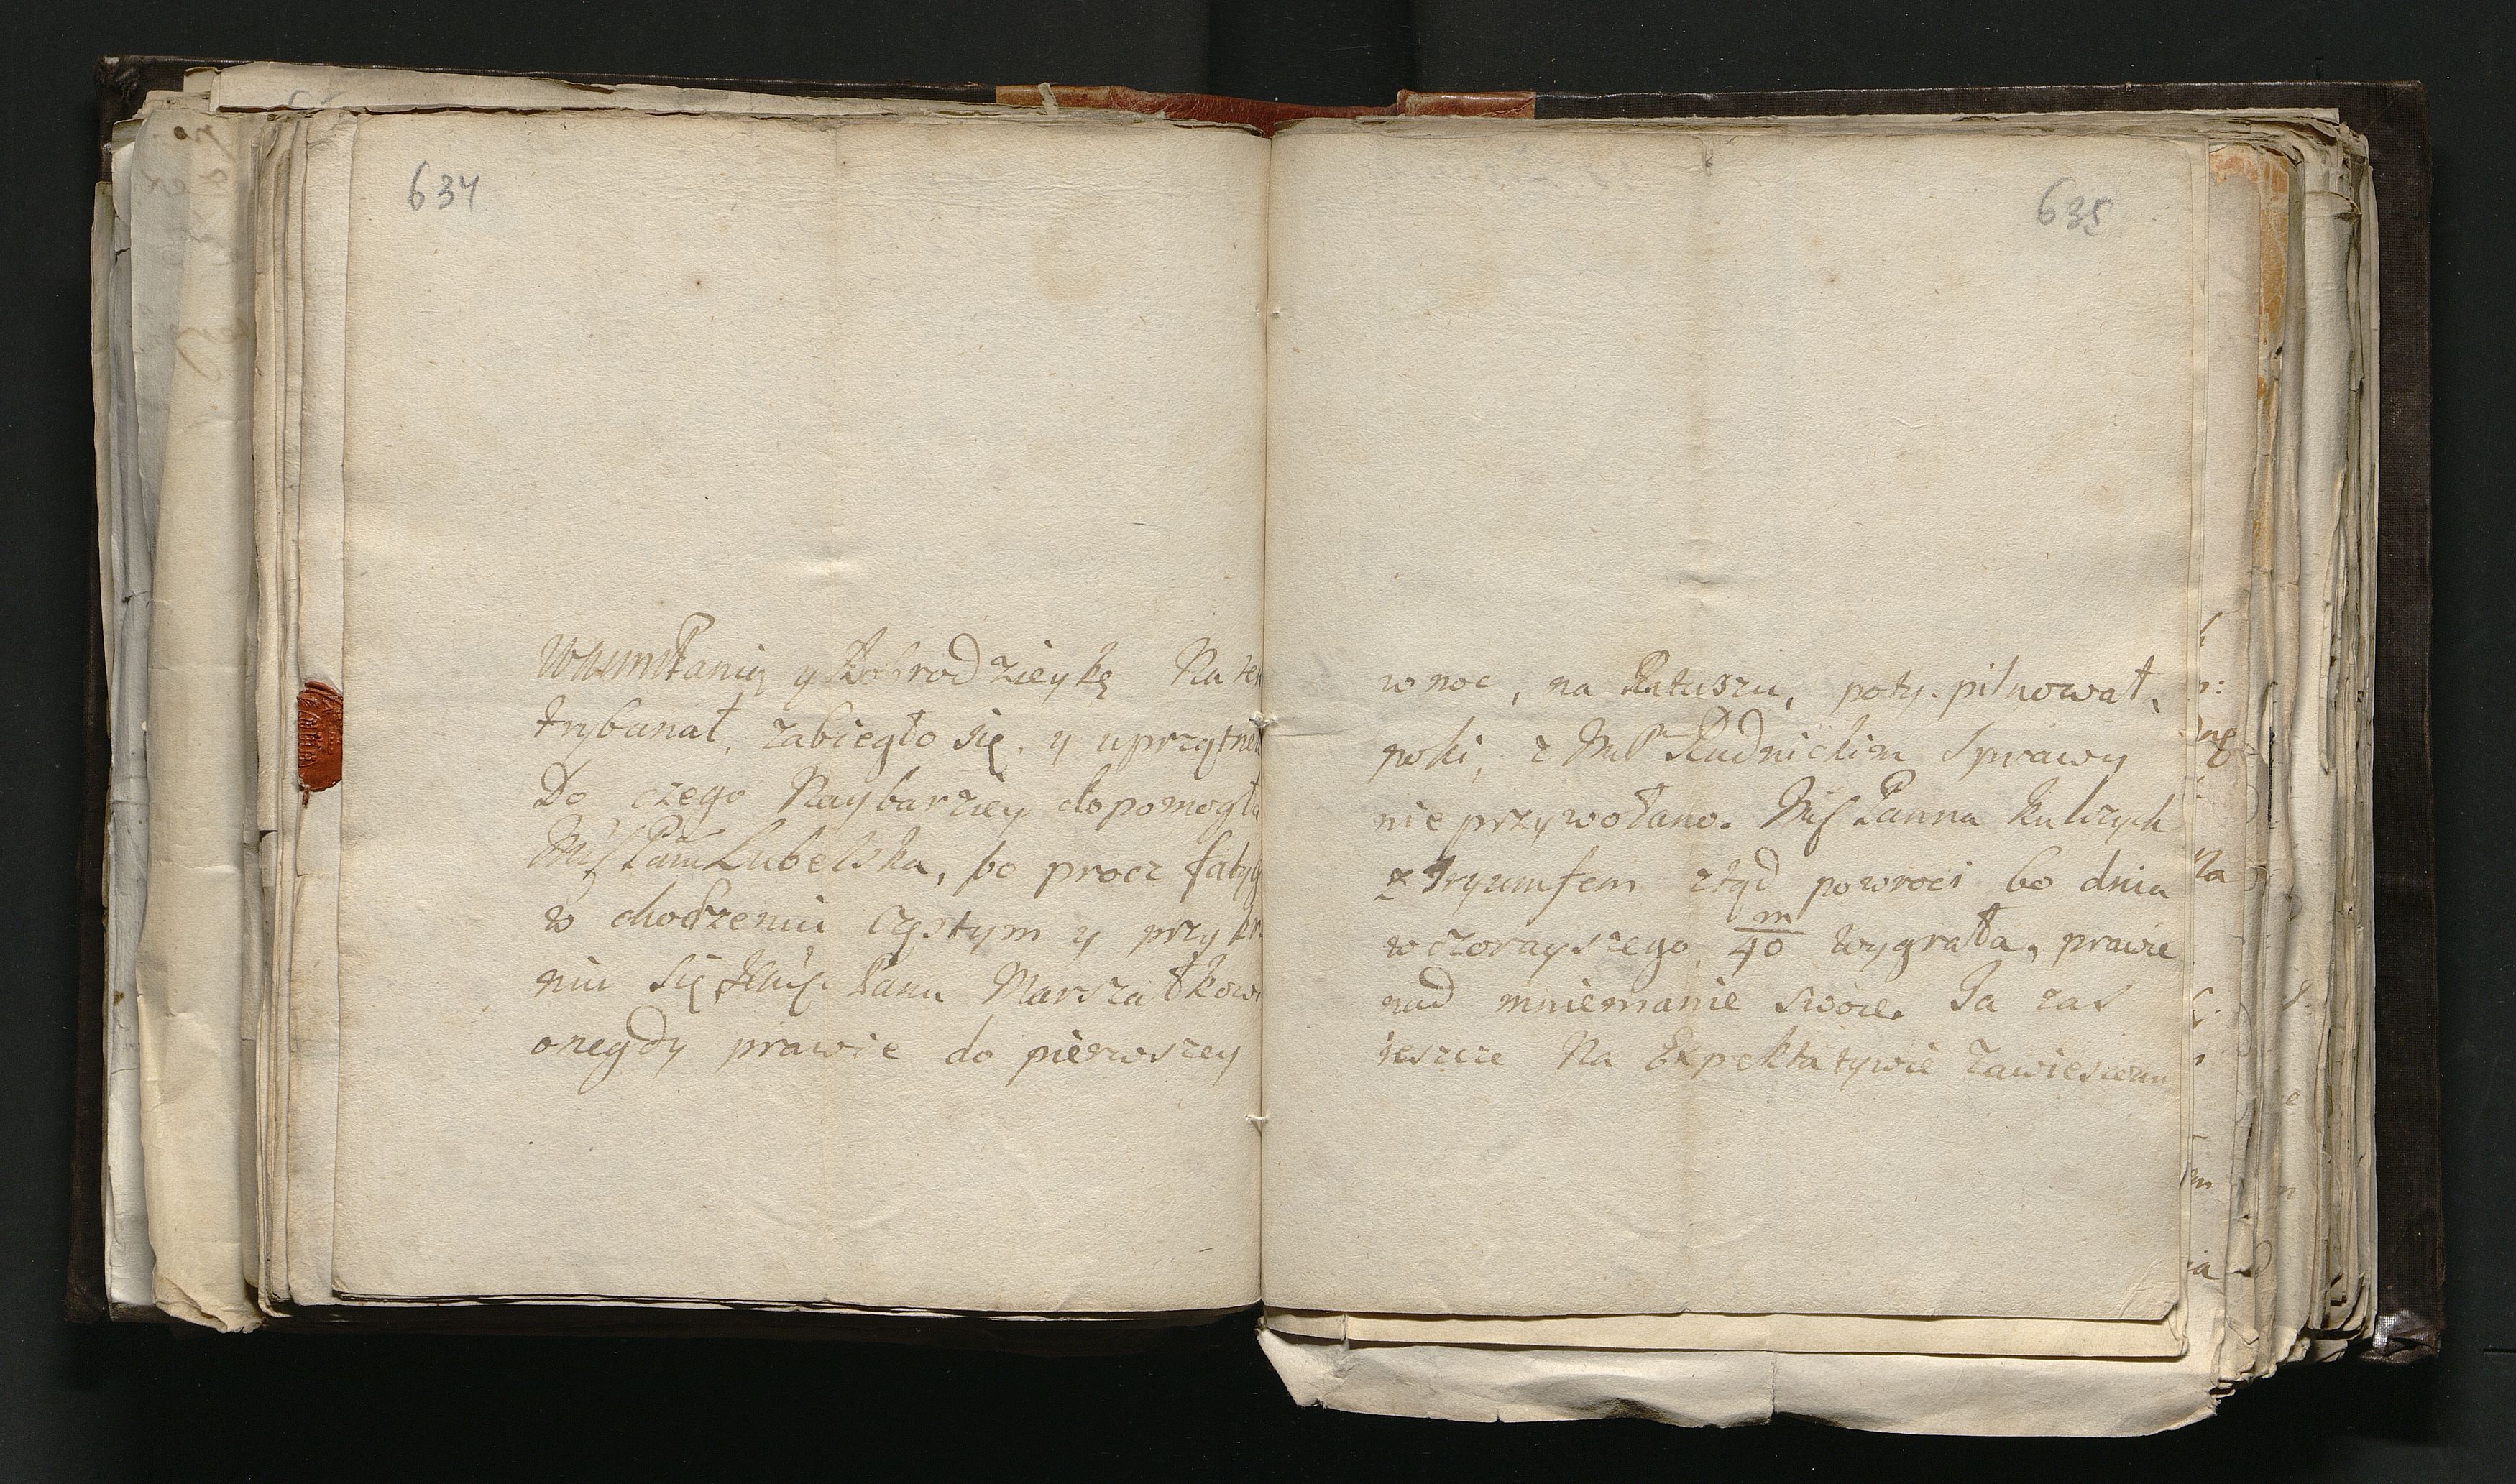 634
WMMPanią y Dobrodzieykę Na ten
trybunał, zabiegło się, y uprzątne
Do czego Naybarziey dopomogła
Lubelska, bo procz fatyg
w chodzeniu czstym y przykr
niu się Panu Marszałkow
onegdy prawie do pierwszey
635
w noc, na Ratuszu, poty. pilnował,
poki, z Rudnickim Sprawy
nie przywołano. Panna
z Tryumfem ztąd powroci bo dnia
wczorayszego, 40 m wygrała, prawie
nad mniemanie swoie. Ja zas
ieszcze Na Expektatywie